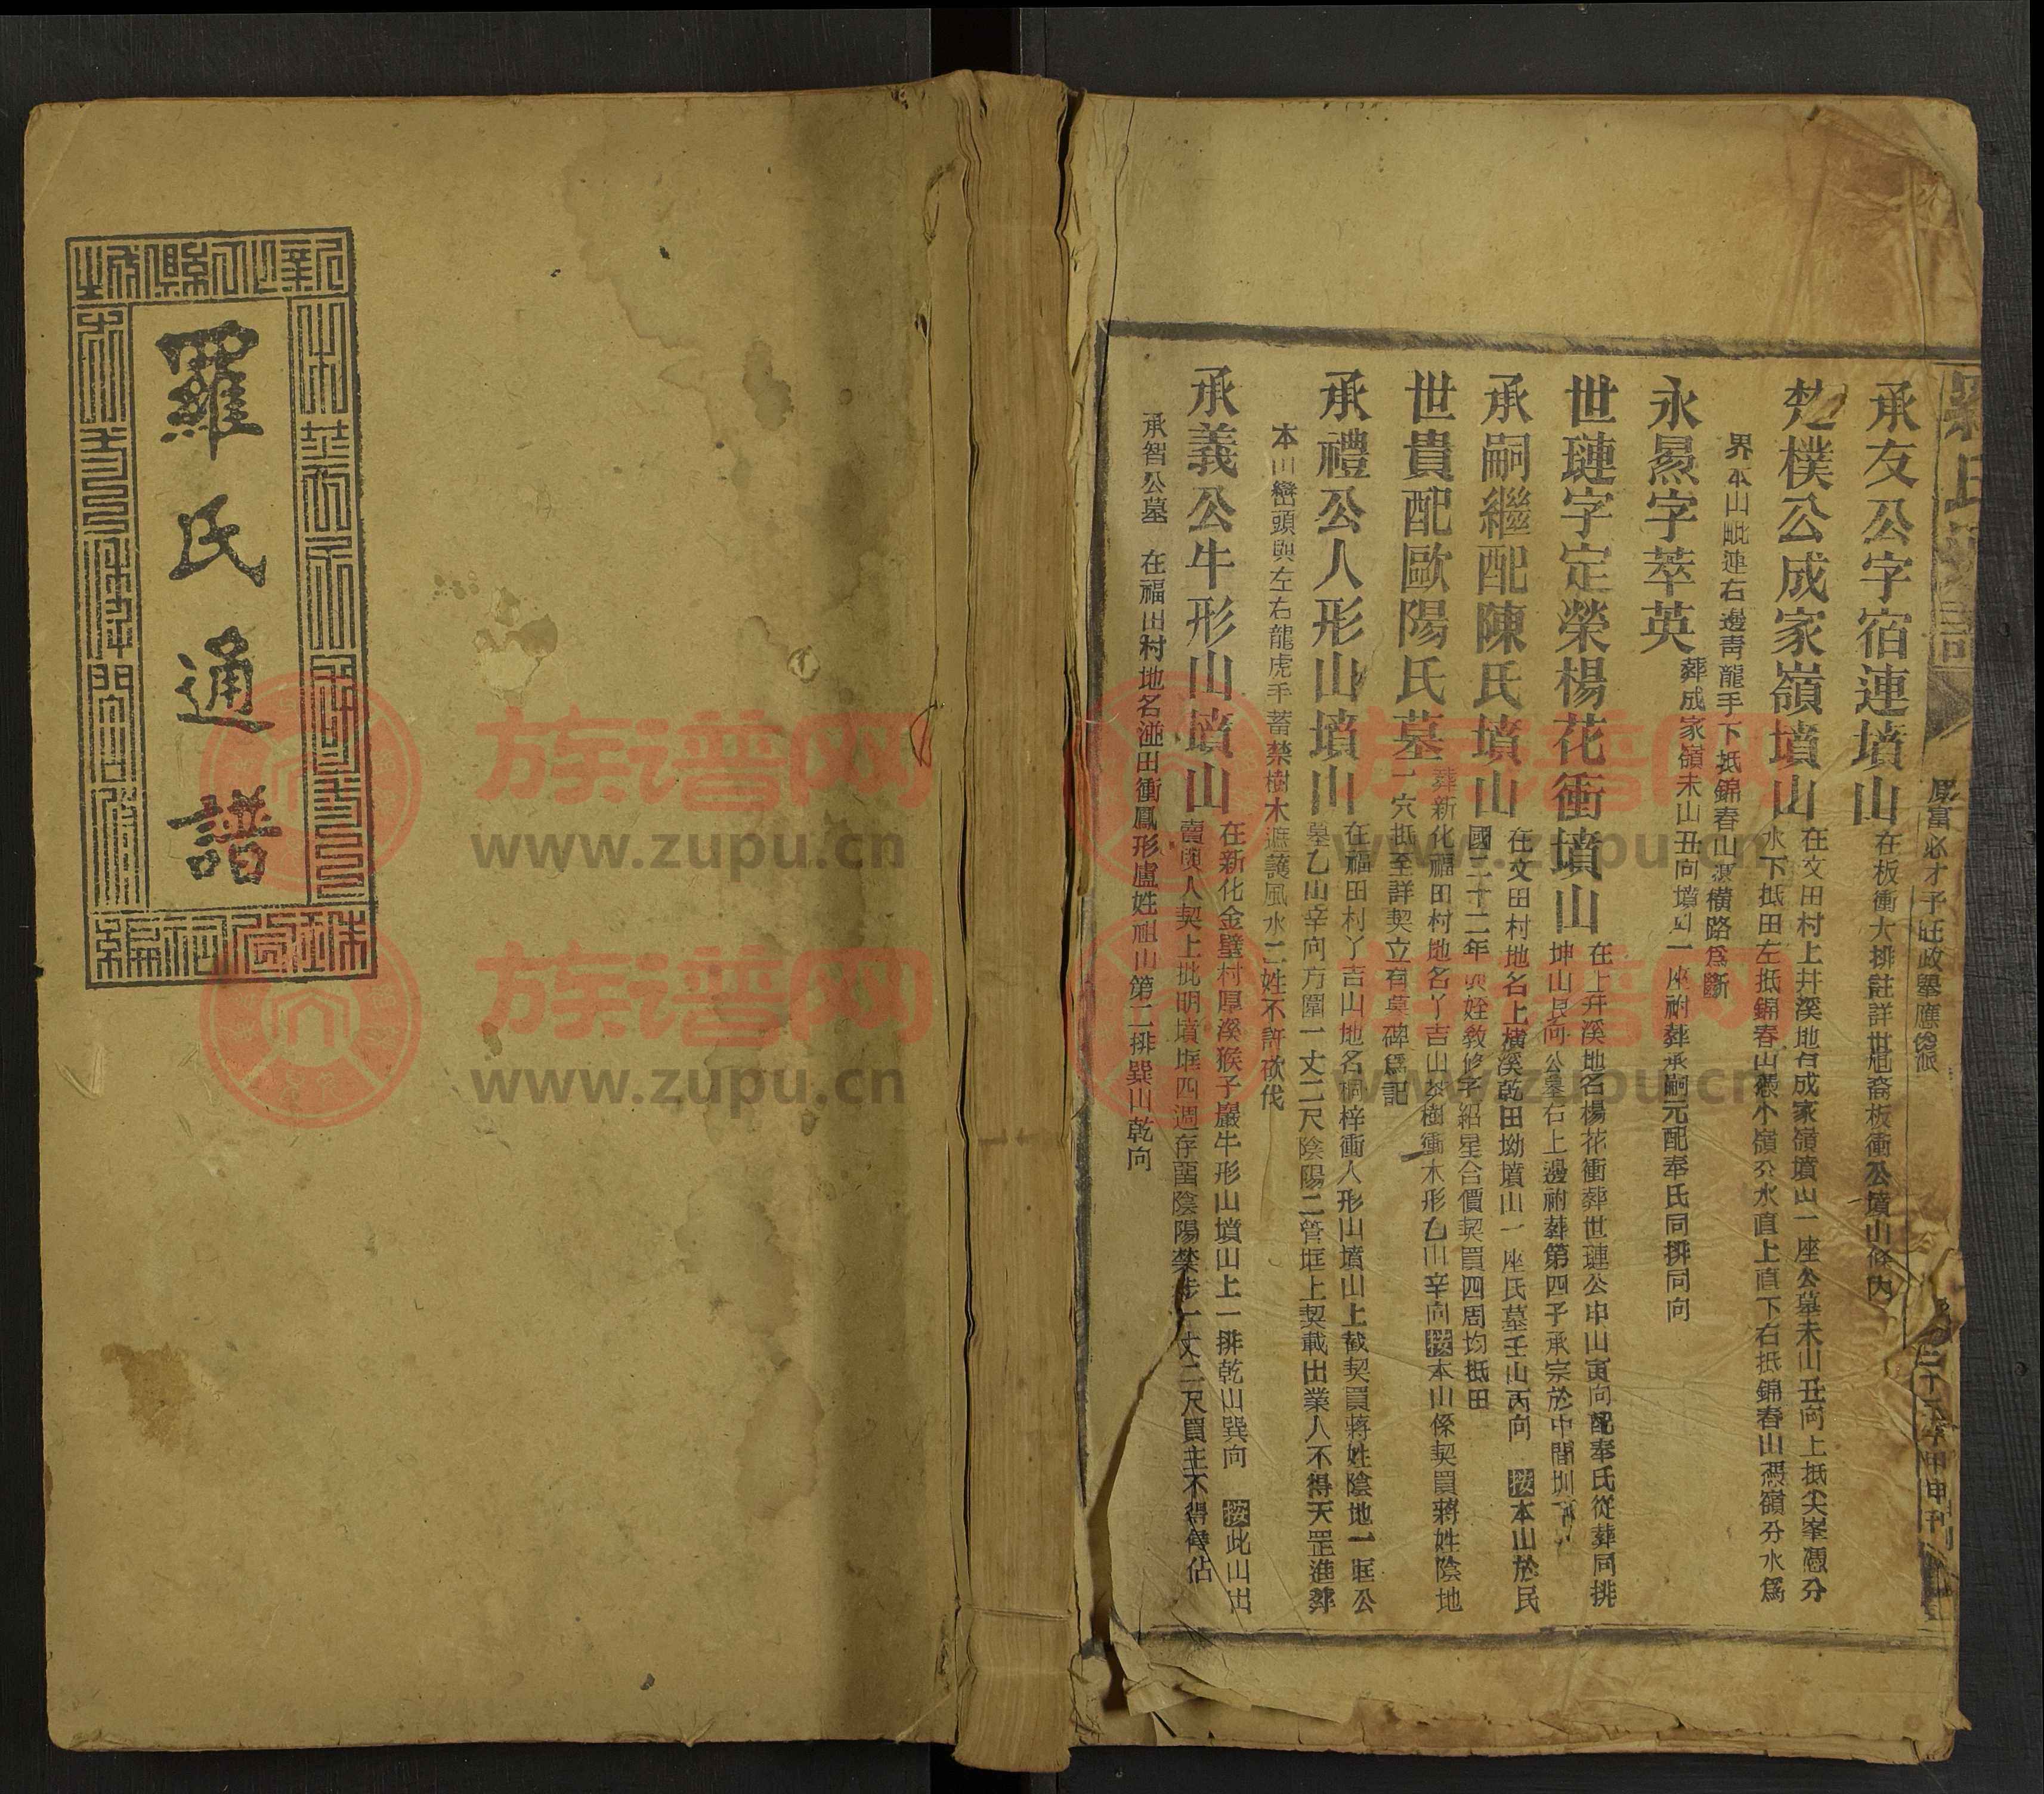 羅氏通譜
承友公字宿連墳山
在板衝大排註詳世
裔板衝公墳山條內
樸公成家嶺墳山
在文田村上井溪地名成家嶺墳山一座公墓未山丑向上抵尖峯憑分
水下抵田左抵錦春山憑小嶺分水直上直下右抵錦春山憑嶺分水爲
界本山毗連右邊靑龍手下抵錦春山憑橫路爲斷
永㬎字萃英
葬成家嶺未山丑向墳山一座祔葬承嗣元配奉氏同排同向
世璉字定榮楊花衝墳山
在上井溪地名楊花衝葬世璉公申山寅向配奉氏從葬同排
坤山艮向公墓右上邊祔葬第四子承宗於中間圳
承嗣繼配陳氏墳山
在文田村地名上橫溪乾田坳墳山一座氏墓壬山丙向 按本山於民
國二十二年與姪敎修字紹星合價契買四周均抵田
世貴配歐陽氏墓
葬新化福田村地名丫吉山茶樹衝木形乙山辛向按本山係契買蔣姓陰地
一穴抵至詳契立有墓碑爲記
承禮公人形山墳山
在福田村丫吉山地名桐梓衝人形山墳山上截契買蔣姓陰地一框公
墓乙山辛向方圍一丈二尺陰陽二管框上契載出業人不得天罡進葬
本山巒頭與左右龍虎手蓄禁樹木遮護風水二姓不許砍伐
承義公牛形山墳山
在新化金璧村厚溪猴子巖牛形山墳山上一排乾山巽向 按此山出
賣與人契上批明墳框四週存留陰陽禁步一丈二尺買主不得侵佔
承智公墓 在福田村地名湴田衝鳳形盧姓祖山第二排巽山乾向
族谱网
www.zupu.cn
族谱网
www.zupu.cn
族谱网
www.zupu.cn
族谱网
www.zupu.cn